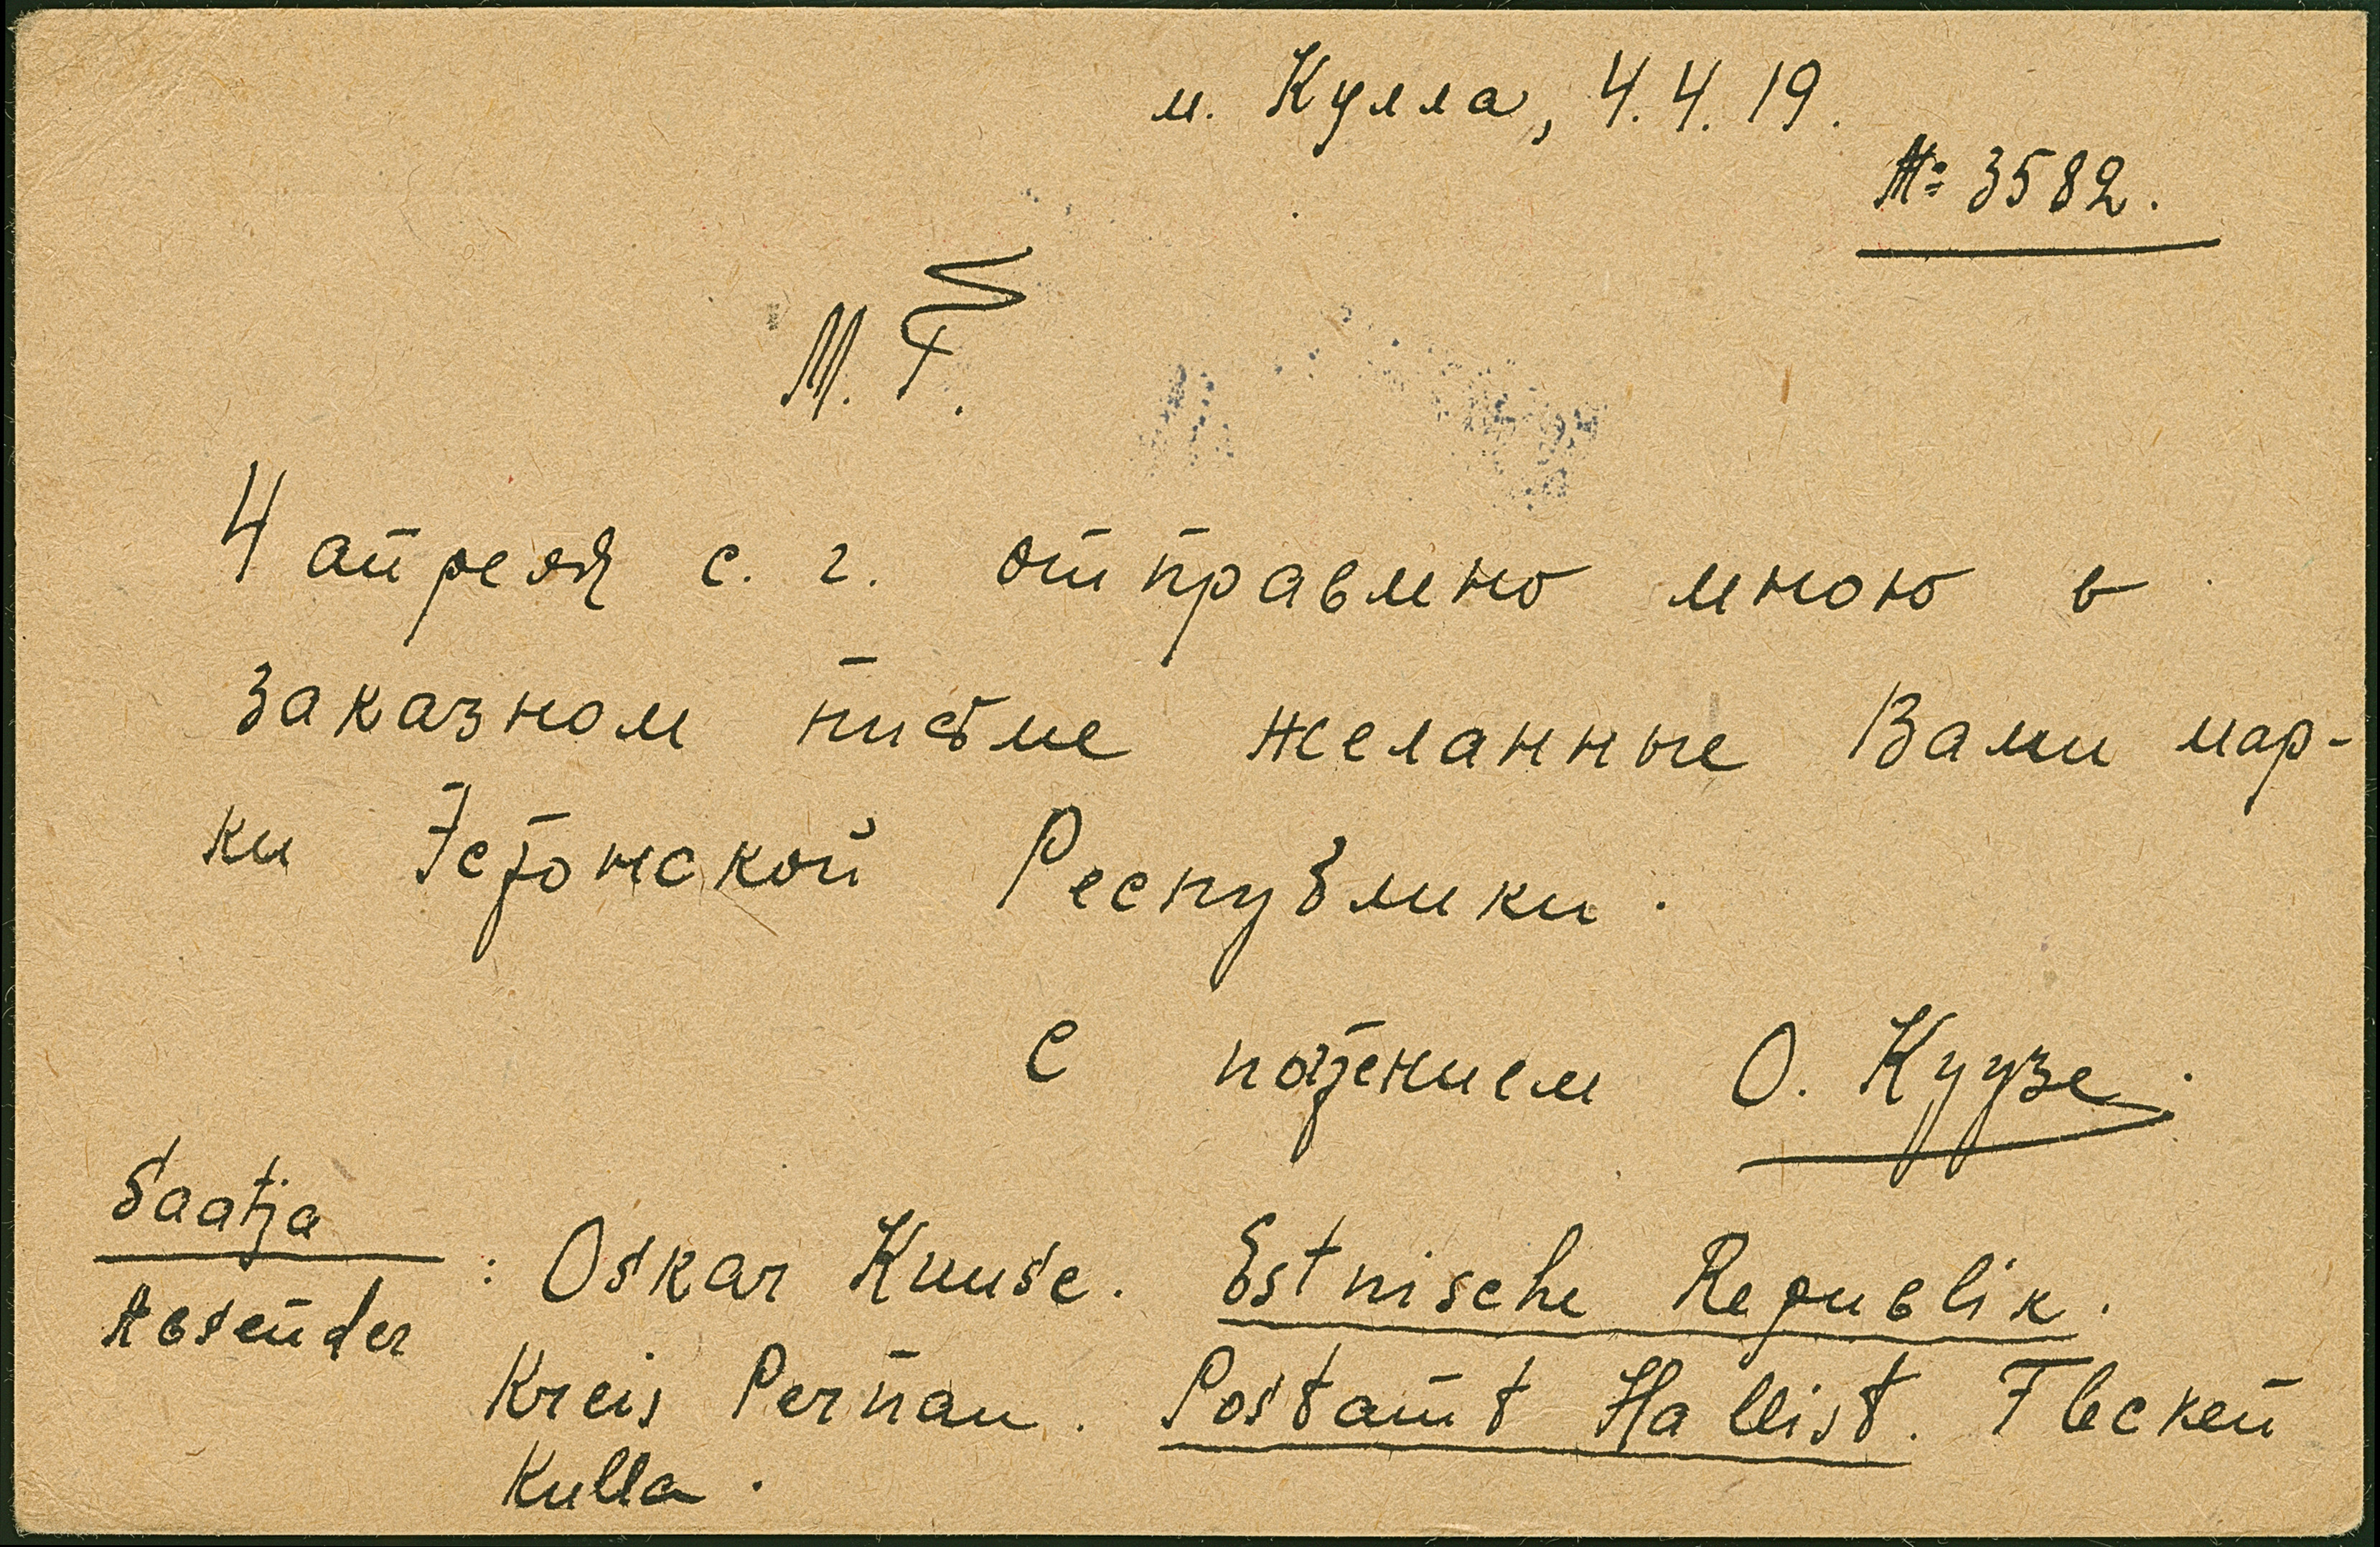 м. Кулла, 4.4.19.
№ 3582.
М. Г.
4 апреля с. г. отправлено мною в
заказном письме желанные Вами мар-
ки Эстонской Республики.
С почтением О. Куузе.
Saatja
Absender
: Oskar Kuuse. Estnische Republik.
Kreis Pernau. Postamt Hallist. Flecken
Kulla.